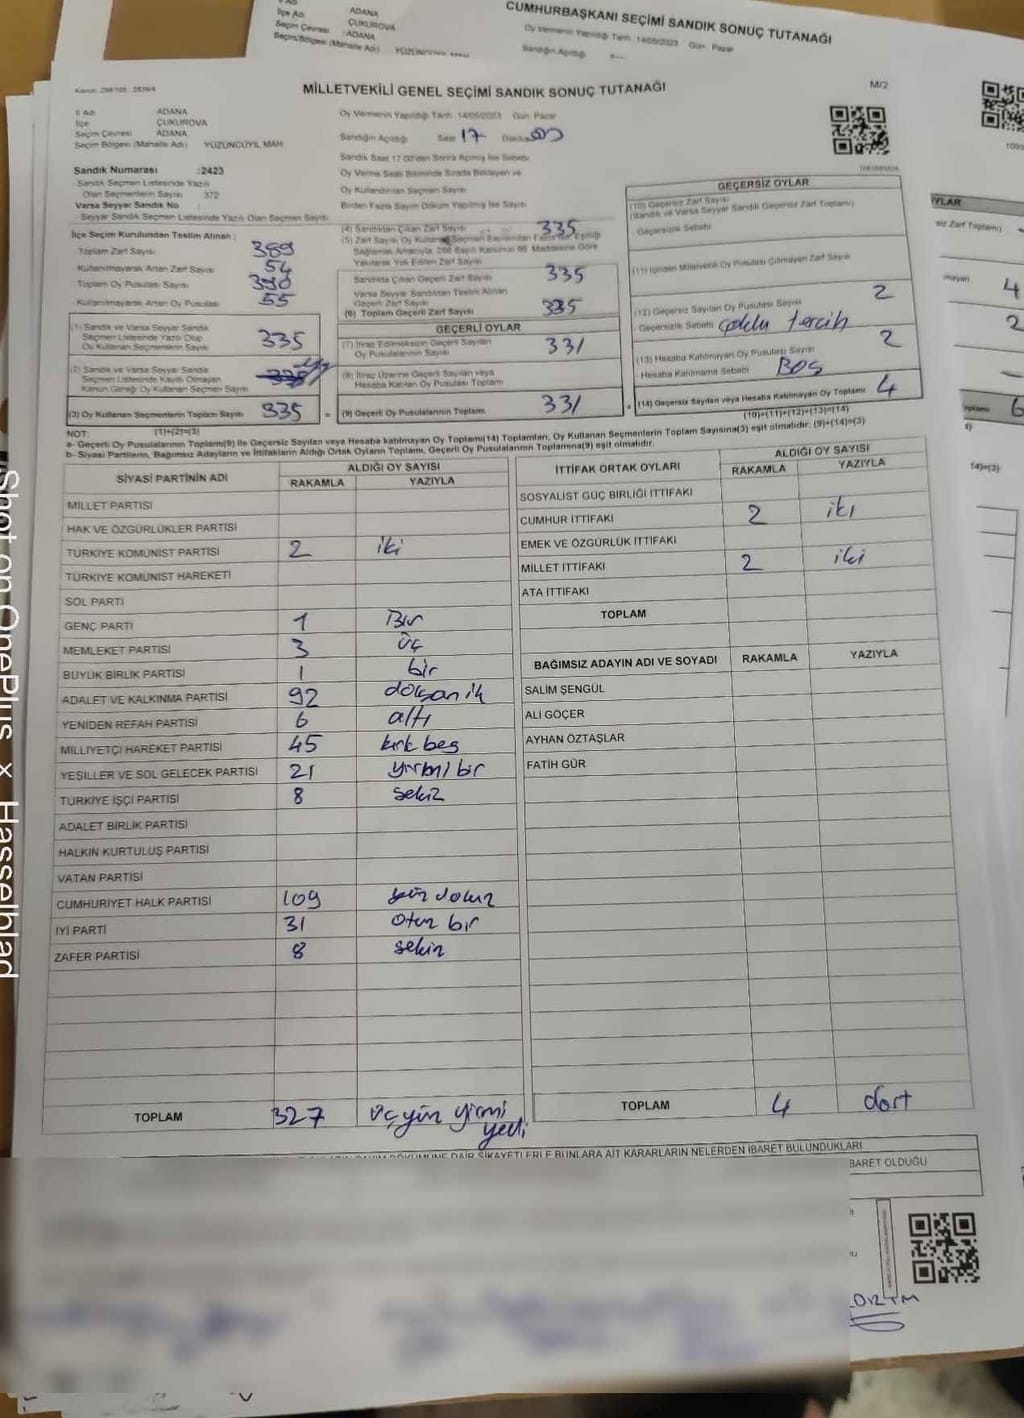 ADANA
ÇUKUROVA
ADANA
Seçim Bölgesi (Mahalle Adı)
CUMHURBAŞKANI SEÇİMİ SANDIK SONUÇ TUTANAĞI
Oy Vermenin Yapıldığı Tarih 14/05/2023 Gün Pazar
Sandığın Açıldığı
MİLLETVEKİLİ GENEL SEÇİMİ SANDIK SONUÇ TUTANAĞI
M/2
İl Adı ADANA
İlçe ÇUKUROVA
Seçim Çevresi ADANA
Seçim Bölgesi (Mahalle Adı) YÜZÜNCÜYIL MAH
Sandık Numarası :2423
Sandık Seçmen Listesinde Yazılı
Olan Seçmenlerin Sayısı 372
Varsa Seyyar Sandık No :
Seyyar Sandık Seçmen Listesinde Yazılı Olan Seçmen Sayısı
Oy Vermenin Yapıldığı Tarih 14/05/2023 Gün Pazar
Sandığın Açıldığı Saat 17 Dakika 00
Sandık Saat 17 00'den Sonra Açılmış İse Sebebi
Oy Verme Saati Bitiminde Sırada Bekleyen ve
Oy Kullandırılan Seçmen Sayısı
Birden Fazla Sayım Döküm Yapılmış İse Sayısı
İlçe Seçim Kurulundan Teslim Alınan :
Toplam Zarf Sayısı 389
Kullanılmayarak Artan Zarf Sayısı 54
Toplam Oy Pusulası Sayısı 390
Kullanılmayarak Artan Oy Pusulası 55
(1) Sandık ve Varsa Seyyar Sandık
Seçmen Listesinde Yazılı Olup
Oy Kullanan Seçmenlerin Sayısı 335
(2) Sandık ve Varsa Seyyar Sandık
Seçmen Listesinde Kayıtlı Olmayan
Kanun Gereği Oy Kullanan Seçmen Sayısı
(3) Oy Kullanan Seçmenlerin Toplam Sayısı 335
(1)+(2)=(3)
(4) Sandıktan Çıkan Zarf Sayısı 335
(5) Zarf Sayısı Oy Kullanan Seçmen Sayısından Fazla İse Eşitliği
Sağlamak Amacıyla, 298 Sayılı Kanunun 98 Maddesine Göre
Yakılarak Yok Edilen Zarf Sayısı
Sandıkta Çıkan Geçerli Zarf Sayısı 335
Varsa Seyyar Sandıktan Teslim Alınan
Geçerli Zarf Sayısı
(6) Toplam Geçerli Zarf Sayısı 335
GEÇERLİ OYLAR
(7) İtiraz Edilmeksizin Geçerli Sayılan
Oy Pusulalarının Sayısı 331
(8) İtiraz Üzerine Geçerli Sayılan veya
Hesaba Katılan Oy Pusulası Toplamı
(9) Geçerli Oy Pusulalarının Toplamı 331
GEÇERSİZ OYLAR
(10) Geçersiz Zarf Sayısı
(Sandık ve Varsa Seyyar Sandık Geçersiz Zarf Toplamı)
Geçersizlik Sebebi
(11) İçinden Milletvekili Oy Pusulası Çıkmayan Zarf Sayısı
(12) Geçersiz Sayılan Oy Pusulası Sayısı 2
Geçersizlik Sebebi çoklu tercih
(13) Hesaba Katılmayan Oy Pusulası Sayısı 2
Hesaba Katılmama Sebebi Boş
(14) Geçersiz Sayılan veya Hesaba Katılmayan Oy Toplamı 4
(10)+(11)+(12)+(13)=(14)
NOT:
a- Geçerli Oy Pusulalarının Toplamı(9) ile Geçersiz Sayılan veya Hesaba katılmayan Oy Toplamı(14) Toplamları, Oy Kullanan Seçmenlerin Toplam Sayısına(3) eşit olmalıdır. (9)+(14)=(3)
b- Siyasi Partilerin, Bağımsız Adayların ve İttifakların Aldığı Ortak Oyların Toplamı, Geçerli Oy Pusulalarının Toplamına(9) eşit olmalıdır.
SİYASİ PARTİNİN ADI
ALDIĞI OY SAYISI
RAKAMLA YAZIYLA
MİLLET PARTİSİ
HAK VE ÖZGÜRLÜKLER PARTİSİ
TÜRKİYE KOMÜNİST PARTİSİ 2 iki
TÜRKİYE KOMÜNİST HAREKETİ
SOL PARTİ
GENÇ PARTİ 1 Bir
MEMLEKET PARTİSİ 3 üç
BÜYÜK BİRLİK PARTİSİ 1 bir
ADALET VE KALKINMA PARTİSİ 92 doksan iki
YENİDEN REFAH PARTİSİ 6 altı
MİLLİYETÇİ HAREKET PARTİSİ 45 kırk beş
YEŞİLLER VE SOL GELECEK PARTİSİ 21 yirmi bir
TÜRKİYE İŞÇİ PARTİSİ 8 sekiz
ADALET BİRLİK PARTİSİ
HALKIN KURTULUŞ PARTİSİ
VATAN PARTİSİ
CUMHURİYET HALK PARTİSİ 109 yüz dokuz
İYİ PARTİ 31 otuz bir
ZAFER PARTİSİ 8 sekiz
TOPLAM 327 üçyüz yirmi yedi
İTTİFAK ORTAK OYLARI
ALDIĞI OY SAYISI
RAKAMLA YAZIYLA
SOSYALİST GÜÇ BİRLİĞİ İTTİFAKI
CUMHUR İTTİFAKI 2 iki
EMEK VE ÖZGÜRLÜK İTTİFAKI
MİLLET İTTİFAKI 2 iki
ATA İTTİFAKI
TOPLAM
BAĞIMSIZ ADAYIN ADI VE SOYADI RAKAMLA YAZIYLA
SALİM ŞENGÜL
ALİ GÖÇER
AYHAN ÖZTAŞLAR
FATİH GÜR
TOPLAM 4 dört
ŞİKAYETLERLE BUNLARA AİT KARARLARIN NELERDEN İBARET BULUNDUKLARI
BARET OLDUĞU
YLAR
4
2
6
14)=(3)
Shot on OnePlus x Hasselblad